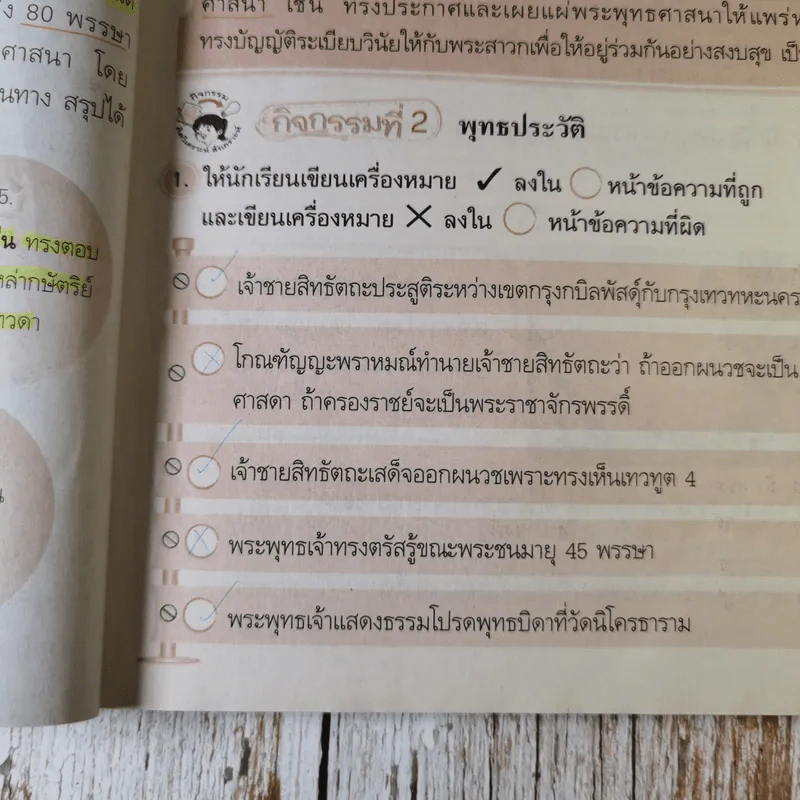 80 พรรษา
ศาสนา โดย
นทาง สรุปได้
5.
ทรงตอบ
หล่ากษัตริย์
ทวดา
ศาสนา เช่น ทรงประกาศและเผยแผ่พระพุทธศาสนาให้แพร่ห
ทรงบัญญัติระเบียบวินัยให้กับพระสาวกเพื่อให้อยู่ร่วมกันอย่างสงบสุข เป็
กิจกรรม
กิจกรรมที่ 2 พุทธประวัติ
1. ให้นักเรียนเขียนเครื่องหมาย ✓ ลงใน ○ หน้าข้อความที่ถูก
และเขียนเครื่องหมาย ✕ ลงใน ○ หน้าข้อความที่ผิด
เจ้าชายสิทธัตถะประสูติระหว่างเขตกรุงกบิลพัสดุ์กับกรุงเทวทหะนคร
โกณฑัญญะพราหมณ์ทำนายเจ้าชายสิทธัตถะว่า ถ้าออกผนวชจะเป็น
ศาสดา ถ้าครองราชย์จะเป็นพระราชาจักรพรรดิ์
เจ้าชายสิทธัตถะเสด็จออกผนวชเพราะทรงเห็นเทวทูต 4
พระพุทธเจ้าทรงตรัสรู้ขณะพระชนมายุ 45 พรรษา
พระพุทธเจ้าแสดงธรรมโปรดพุทธบิดาที่วัดนิโครธาราม